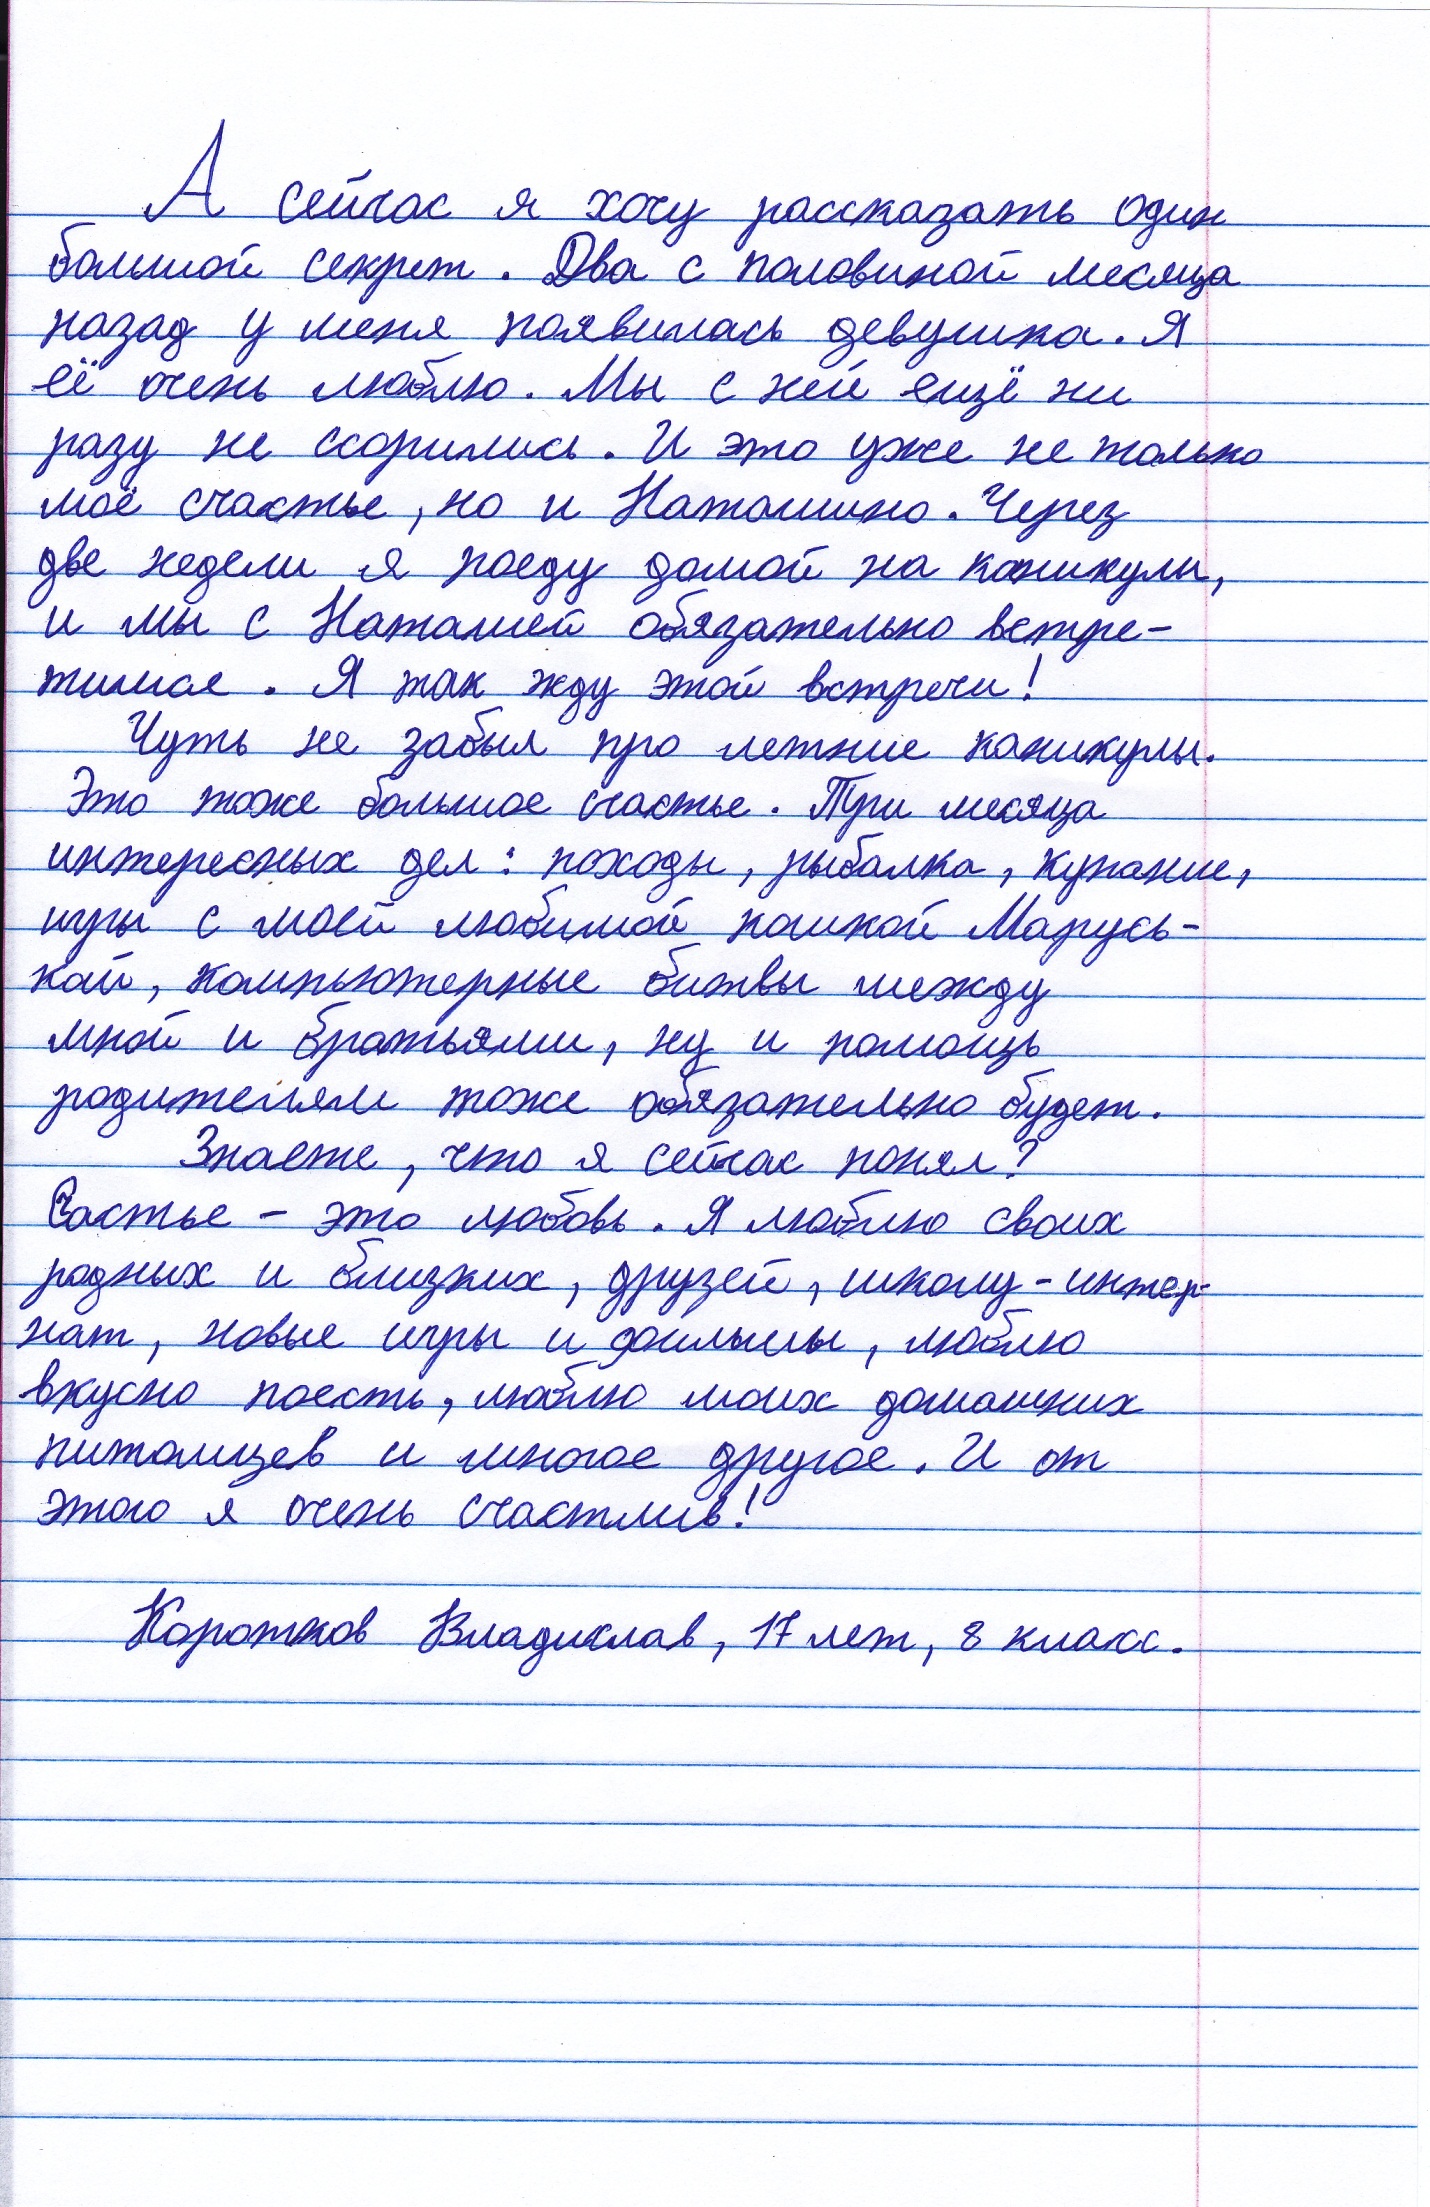 А сейчас я хочу рассказать один
большой секрет. Два с половиной месяца
назад у меня появилась девушка. Я
её очень люблю. Мы с ней ещё ни
разу не ссорились. И это уже не только
моё счастье, но и Наташино. Через
две недели я поеду домой на каникулы,
и мы с Наташей обязательно встре-
тимся. Я так жду этой встречи!
Чуть не забыл про летние каникулы.
Это тоже большое счастье. Три месяца
интересных дел: походы, рыбалка, купание,
игры с моей любимой кошкой Марусь-
кой, компьютерные битвы между
мной и братьями, ну и помощь
родителям тоже обязательно будет.
Знаете, что я сейчас понял?
Счастье - это любовь. Я люблю своих
родных и близких, друзей, школу-интер-
нат, новые игры и фильмы, люблю
вкусно поесть, люблю моих домашних
питомцев и многое другое. И от
этого я очень счастлив!
Коротков Владислав, 17 лет, 8 класс.